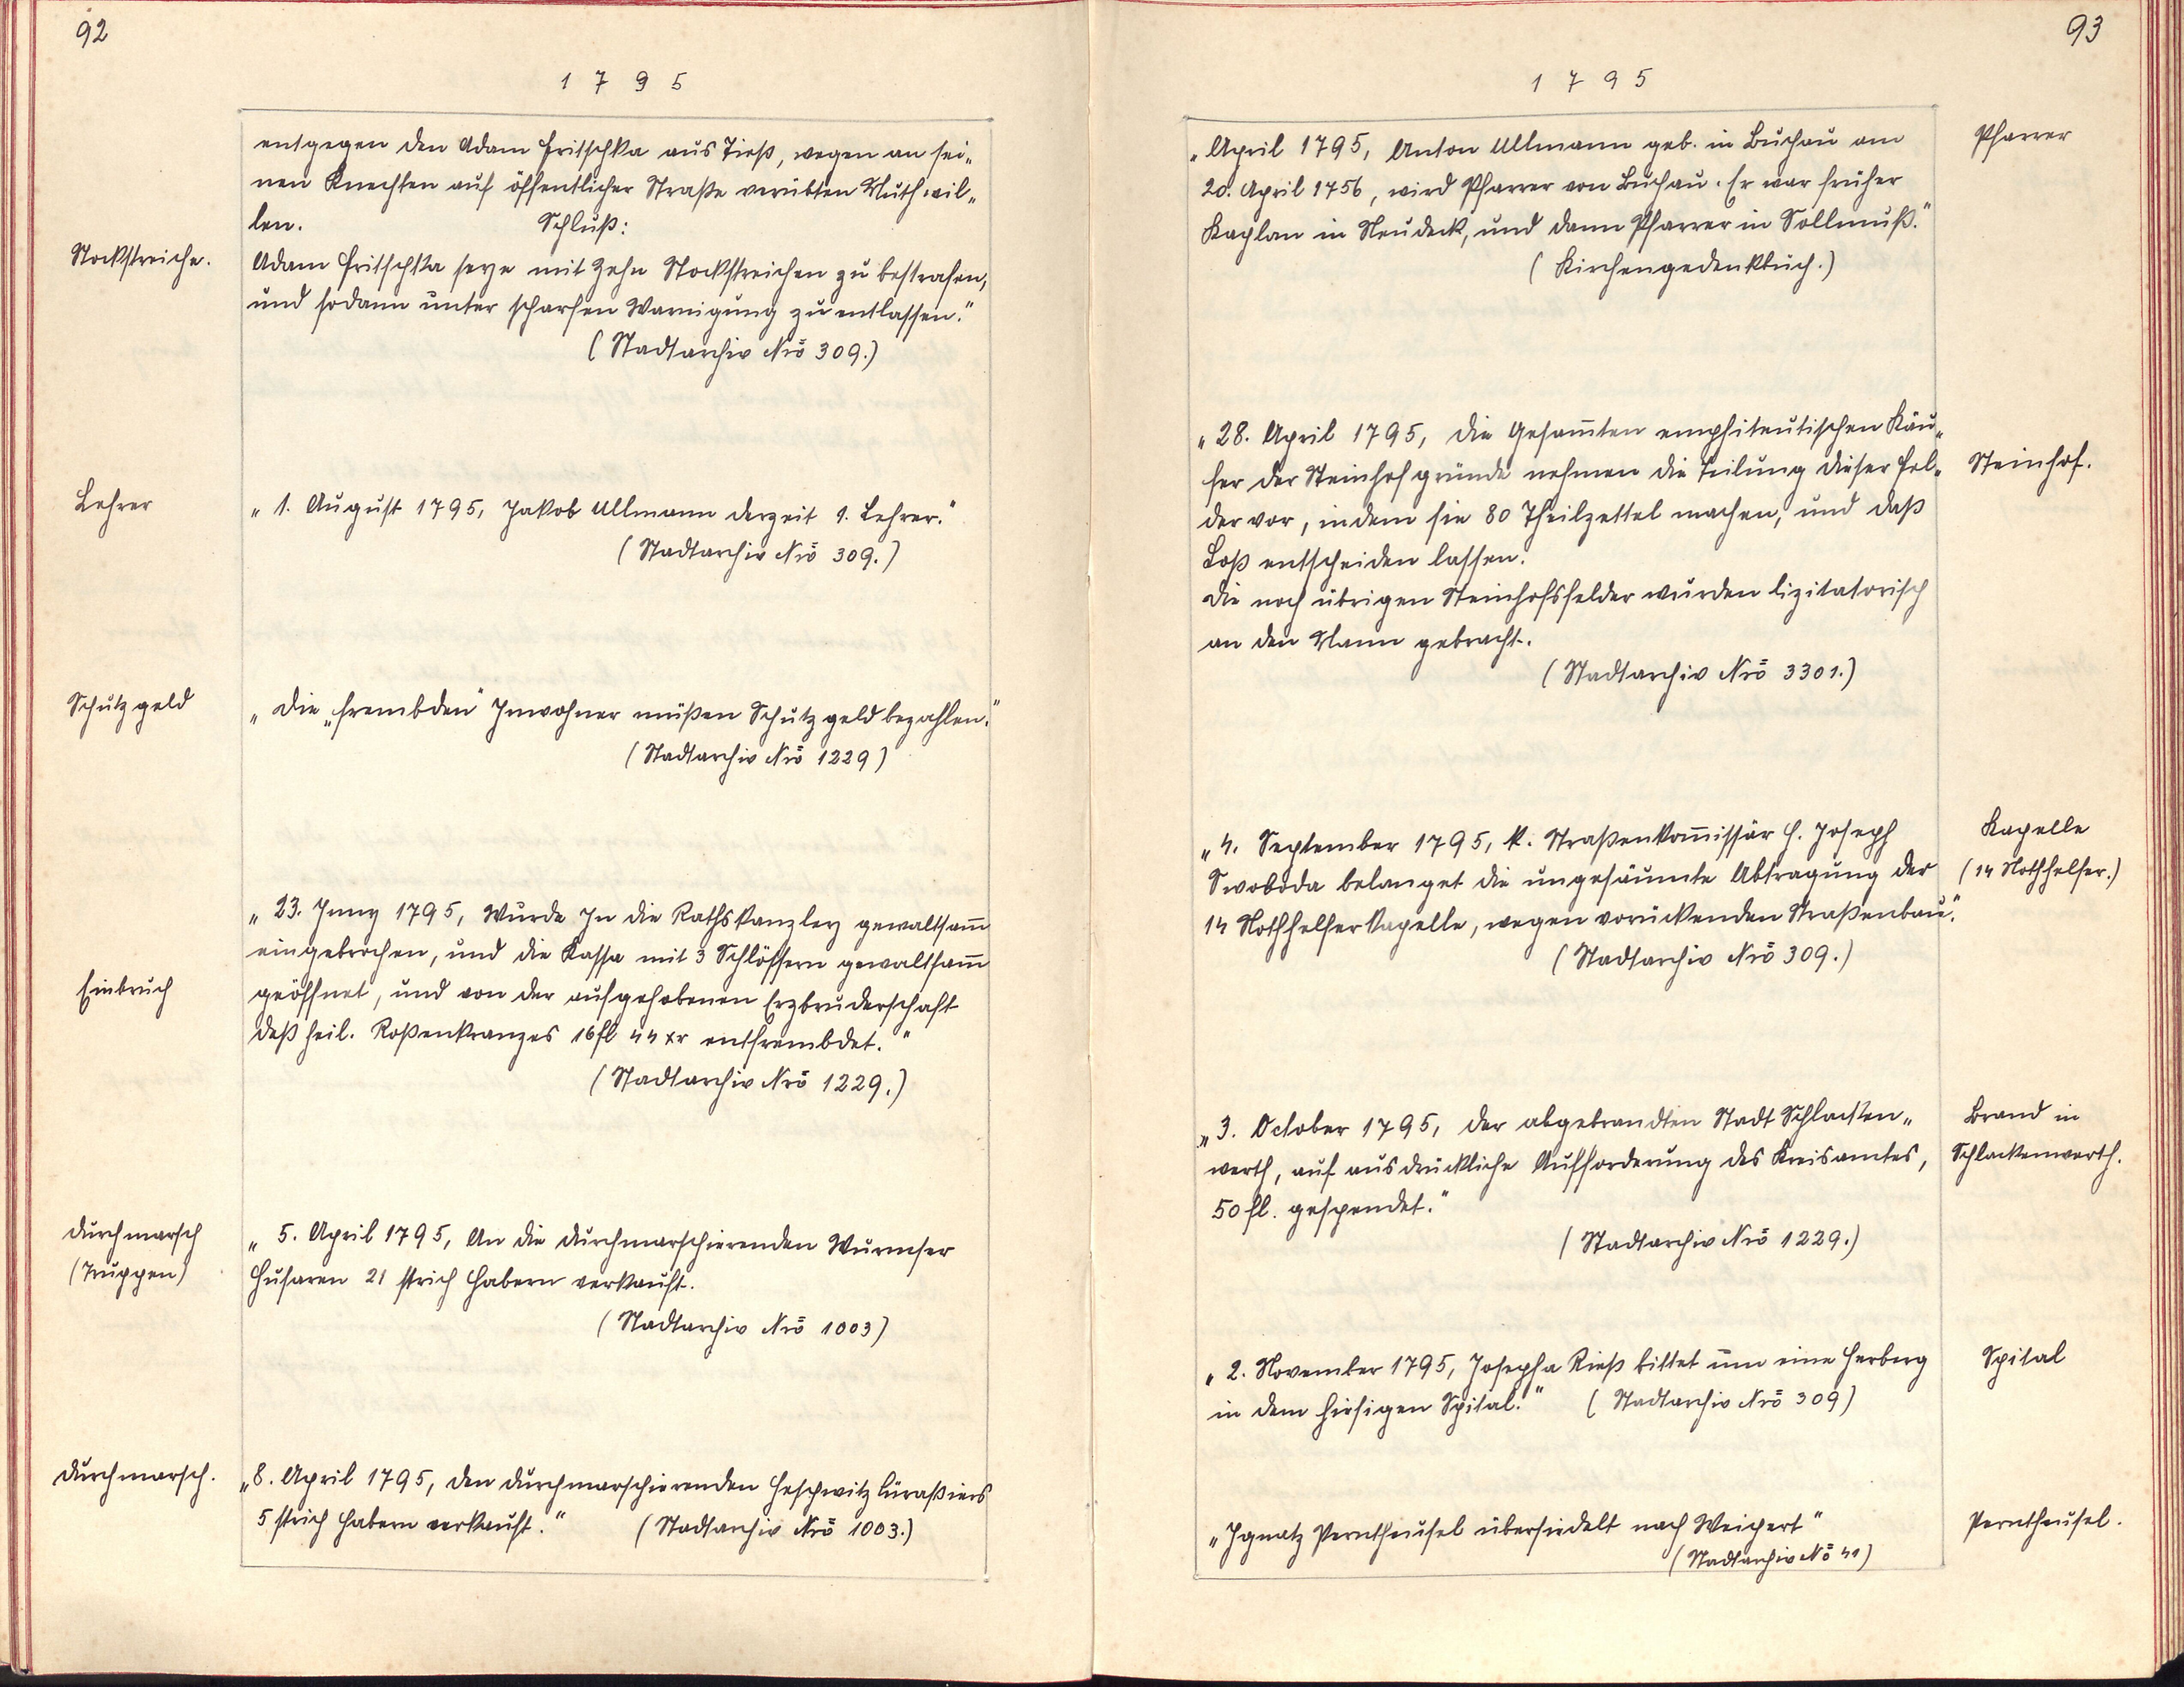 92
1795
entgegen den Adam Fritschka aus Tieß, wegen an sei„
nen Knechten auf öffentlicher Straße verübten Muthwil„
len. Schluß:
Stockstreiche.
Adam Fritschka seye mit Zehn Stockstreichen zu bestrafen,
und sodann unter scharfen Warnigung zu entlassen."
(Stadtarchiv Nrō 309.)
Lehrer
„1. August 1795, Jakob Ullmann derzeit 1. Lehrer."
(Stadtarchiv Nrō 309.)
Schutzgeld
„Die „frembden" Inwohner müßen Schutzgeld bezahlen."
(Stadtarchiv Nrō 1229)
„23. Juny 1795, Wurde In die Rathskanzley gewaltsam̄
eingebrochen, und die Kassa mit 3 Schlössern gewaltsam̄
Einbruch
geöffnet, und von der aufgehobenen Erzbruderschaft
deß heil. Roßenkranzes 16fl 44 xr entfrembdet."
(Stadtarchiv Nrō 1229.)
Durchmarsch
(Truppen)
„5. April 1795, An die Durchmarschierenden Wurmser
Husaren 21 strich Habern verkauft.
(Stadtarchiv Nrō 1003)
Durchmarsch.
„8. April 1795, den durchmarschierenden Heschwitz Cüraßiers
5 strich Habern verkauft." (Stadtarchiv Nrō 1003.)
93
1795
„April 1795, Anton Ullmann geb. in Buchau am
Pfarrer
20. April 1756, wird Pfarrer von Buchau. Er war früher
Kaplan in Neudek, und dann Pfarrer in Sollmuß."
(Kirchengedenkbuch.)
„28. April 1795, die Gesam̄ten emphiteutischen Käu„
fer der Steinhofgründe nehmen die Teilung dieser Fel„
Steinhof.
der vor, indem sie 80 Theilzettel machen, und daß
Loß entscheiden lassen.
Die noch übrigen Steinhofsfelder wurden lizitatorisch
an den Mann gebracht.
(Stadtarchiv Nrō 3301.)
„4. September 1795, k. Straßenkom̄issär H. Joseph
Kapelle
Swoboda belanget die ungesäumte Abtragung der
(14 Nothhelfer.)
14 Nothhelferkapelle, wegen vorückenden Straßenbau."
(Stadtarchiv Nrō 309.)
„3. October 1795, der abgebrandten Stadt Schlacken„
Brand in
werth, auf ausdrückliche Aufforderung des Kreisamtes,
Schlackenwerth.
50 fl. gespendet."
(Stadtarchiv Nrō 1229.)
„2. November 1795, Josepha Rieß bittet um eine Herberg
Spital
in dem hiesigen Spital." (Stadtarchiv Nrō 309)
„Ignatz Perntheusel übersiedelt nach Weipert"
Perntheusel.
(Stadtarchiv Nō 41)